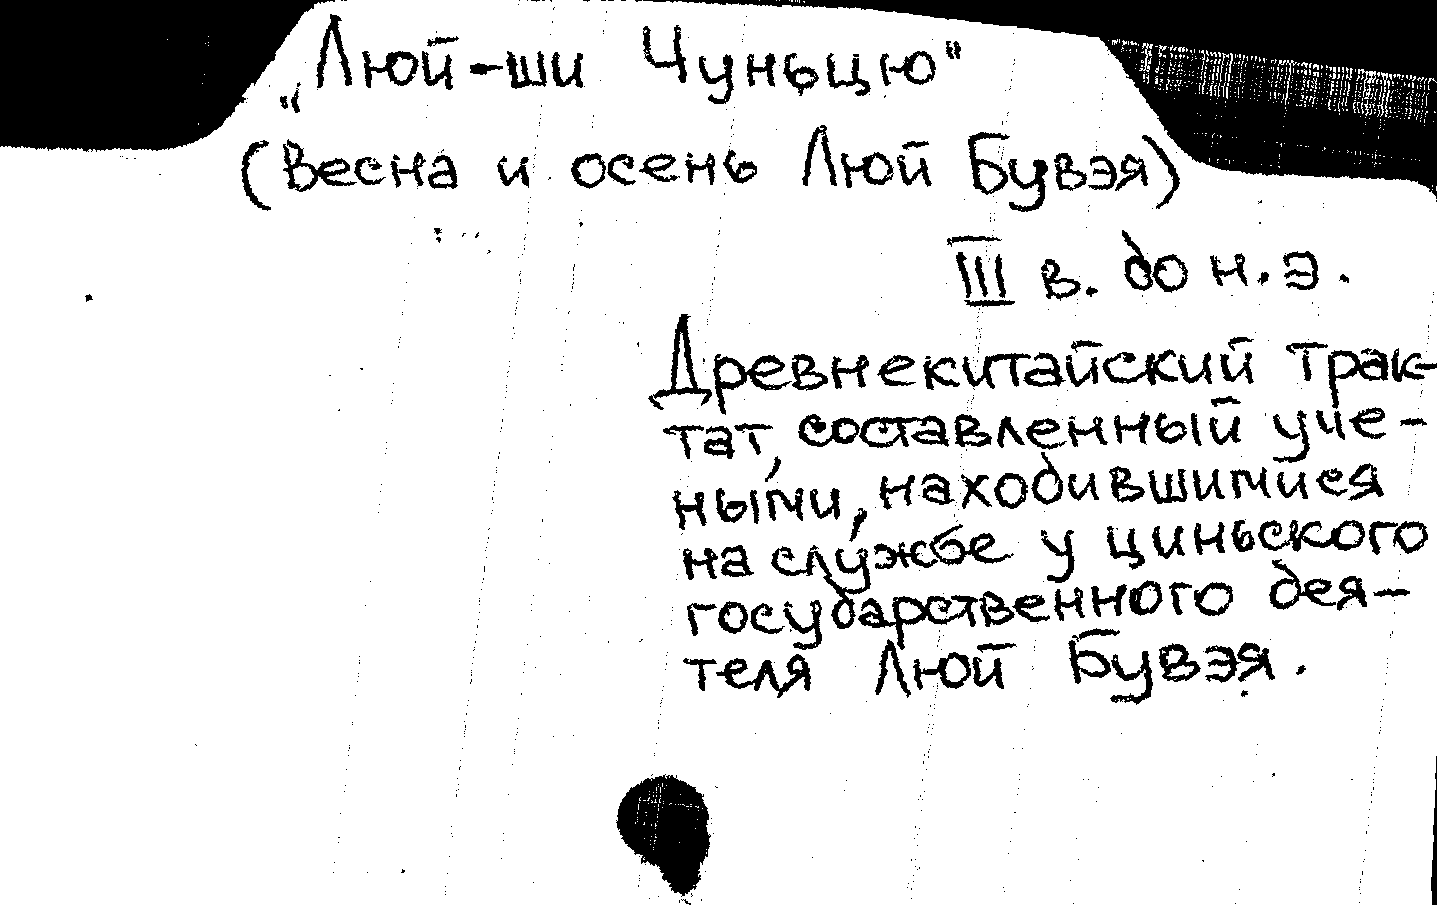 „Люй-ши Чуньцю"
(Весна и осень Люй Бувэя)
III в. до н.э.
Древнекитайский трак-
тат, составленный уче-
ными, находившимися
на службе у циньского
государственного дея-
теля Люй Бувэя.